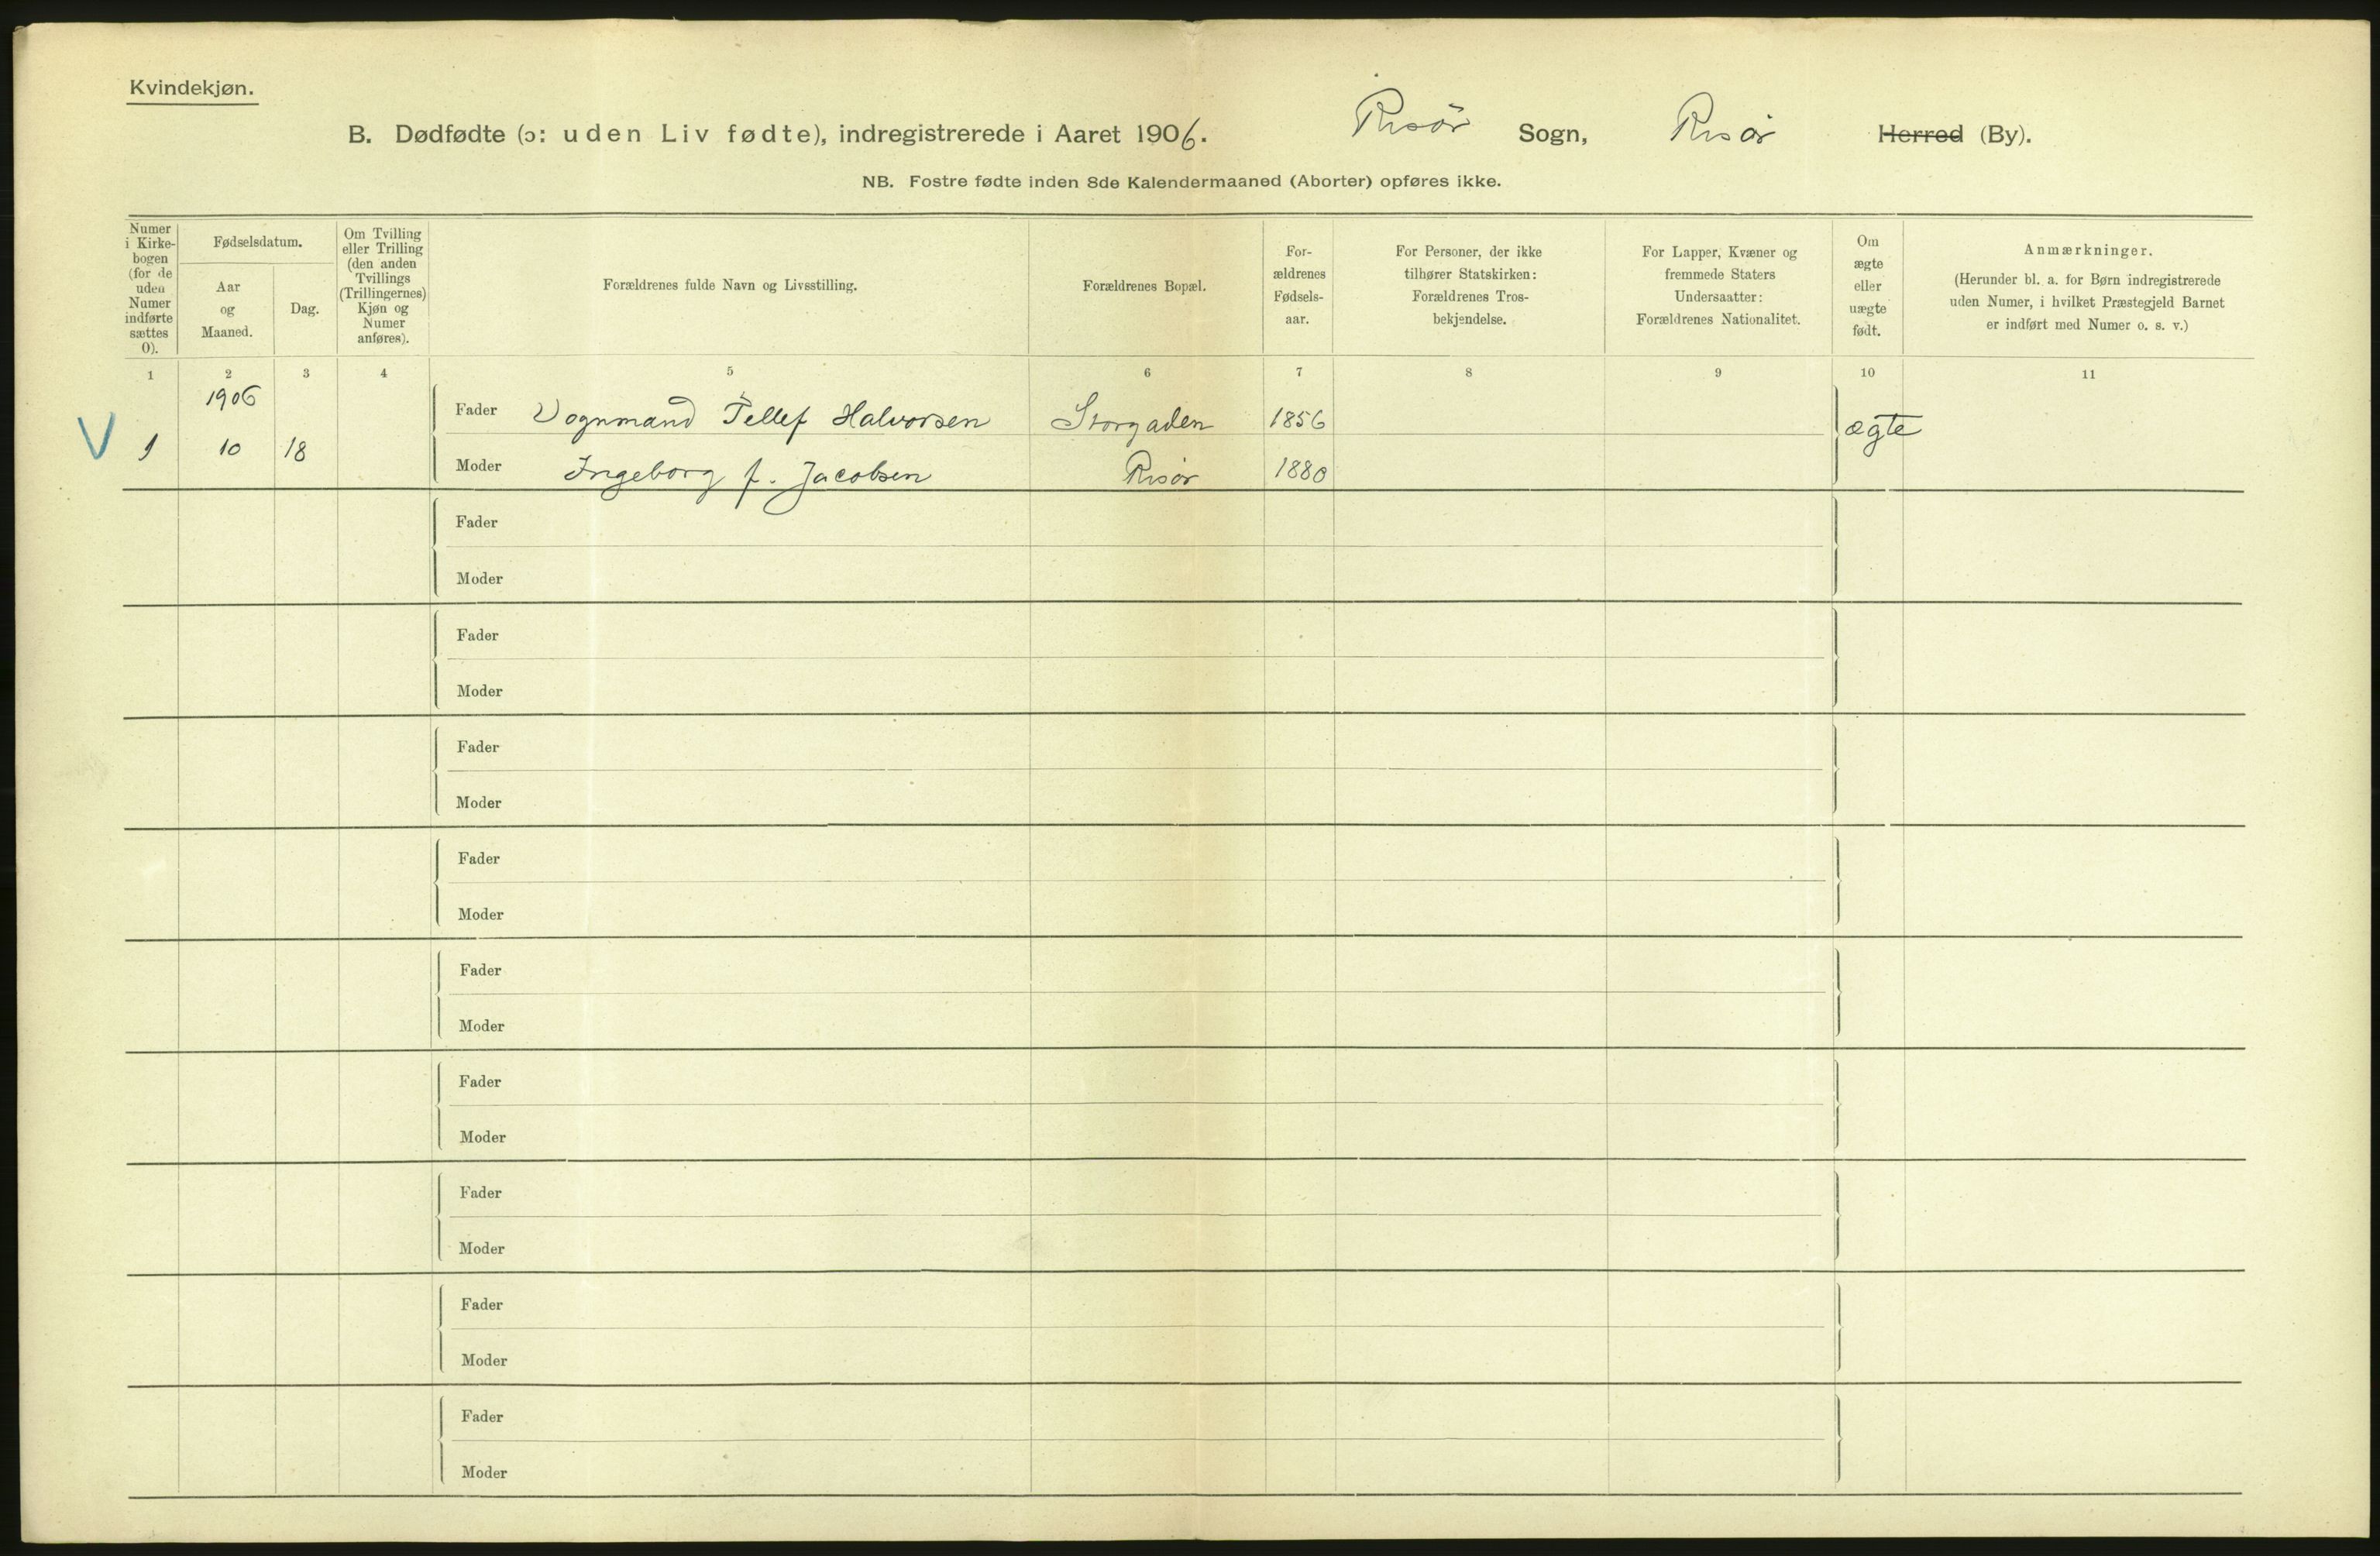 Kvindekjøn.
B. Dødfødte (ɔ: uden Liv fødte), indregistrerede i Aaret 1906. Risör Sogn, Risör Herred (By).
NB. Fostre fødte inden 8de Kalendermaaned (Aborter) opføres ikke.
Numer
i Kirke-
bogen
(for de
uden
Numer
indførte
sættes
0).
Fødselsdatum.
Aar
og
Maaned.
Dag.
Om Tvilling
eller Trilling
(den anden
Tvillings
(Trillingernes)
Kjøn og
Numer
anføres).
Forældrenes fulde Navn og Livsstilling.
Forældrenes Bopæl.
For-
ældrenes
Fødsels-
aar.
For Personer, der ikke
tilhører Statskirken:
Forældrenes Tros-
bekjendelse.
For Lapper, Kvæner og
fremmede Staters
Undersaatter:
Forældrenes Nationalitet.
Om
ægte
eller
uægte
født.
Anmærkninger.
(Herunder bl. a. for Børn indregistrerede
uden Numer, i hvilket Præstegjeld Barnet
er indført med Numer o. s. v.)
1 2 3 4 5 6 7 8 9 10 11
1906
Fader Vognmand Tellef Halvorsen Storgaden 1856 ægte
V 1 10 18
Moder Ingeborg f. Jacobsen Risör 1880
Fader
Moder
Fader
Moder
Fader
Moder
Fader
Moder
Fader
Moder
Fader
Moder
Fader
Moder
Fader
Moder
Fader
Moder